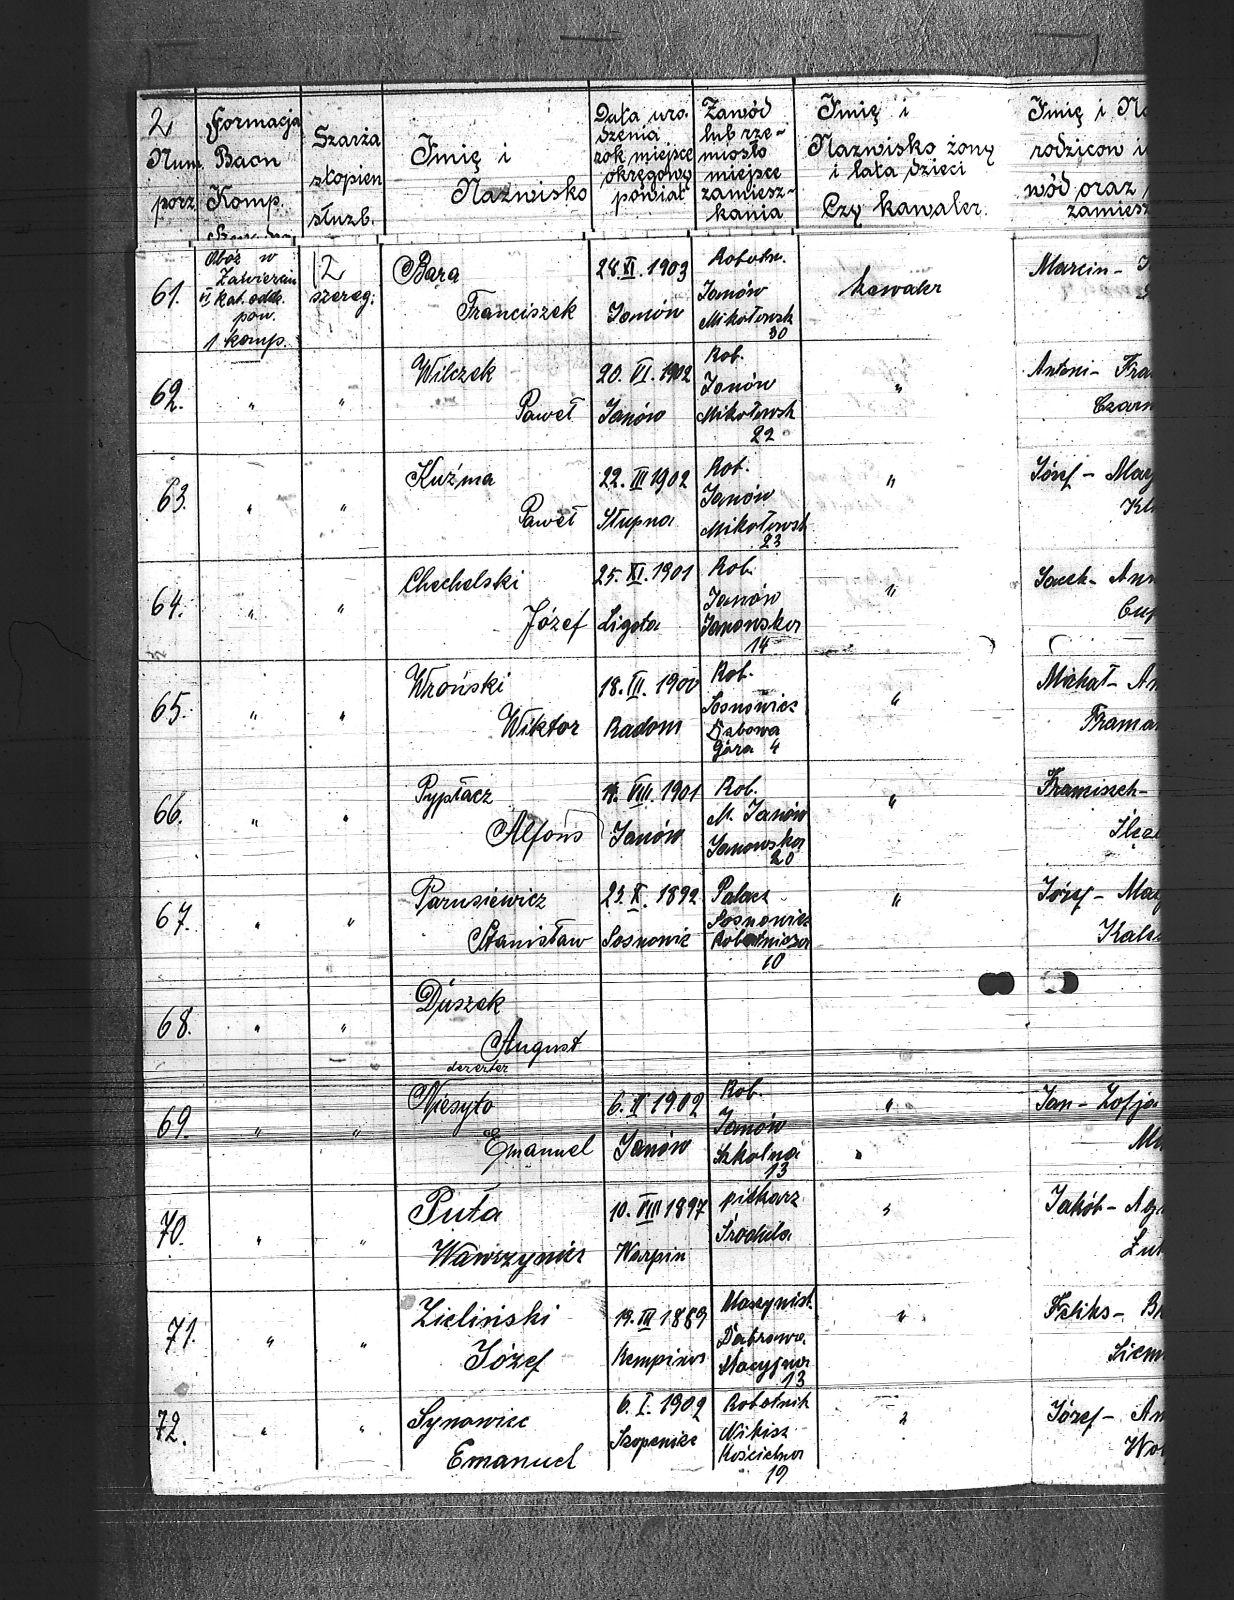 2
Num. porz.
Formacja Baon Komp.
Szarża stopień służb.
Imię i Nazwisko
Data uro- dzenia rok miejsce okręgowy powiat
Zawód lub rze- miosło miejsce zamiesz- kania
Imię i Nazwisko żony i lata dzieci Czy kawaler.
Imię i Na
rodziców i
wód oraz
zamiesz
61. Obóz w Zawierciu VI kat. oddz. pow. 1 komp.
12 szereg.
Bara Franciszek
28. VI. 1903 Janów
Robotn. Janów Mikołowsk 30
kawaler
Marcin -
62. " "
Wilczek Paweł
20. VI. 1902 Janów
Rob. Janów Mikołowsk 22
"
Antoni - Fra
Czarn
63. " "
Kuźma Paweł
22. III 1902 Słupna
Rob. Janów Mikołowsk 23
"
Józef - Mar
64. " "
Chechelski Józef
25. XI. 1901 Ligota
Rob. Janów Janowska 14
"
Jacek - Ann
65. " "
Wroński Wiktor
18. VII. 1900 Radom
Rob. Sosnowiec Dębowa Góra 4
"
Michał - An
66. " "
Pypłacz Alfons
VIII. 1901 Janów
Rob. M. Janów Janowska 20
"
67. " "
Parusiewicz Stanisław
23. X. 1892 Sosnowic
Palacz Sosnowiec Robotnicza 10
"
Józef - Mar
68. " "
Duszek August
dezerter
69. " "
Niesyto Emanuel
6. X 1902 Janów
Rob. Janów Szkolna 13
"
Jan - Zofja
70. " "
Puta Wawrzyniec
10. VIII 1897 Warpin
piekarz Środula
"
Jakób -
71. " "
Zieliński Józef
19. III 1889
Maszynist. Dąbrowa Stacyjna 13
"
Feliks -
72. " "
Synowiec Emanuel
6. I. 1902 Szopenice
Robotnik Nikisz Kościelna 19
"
Józef - An